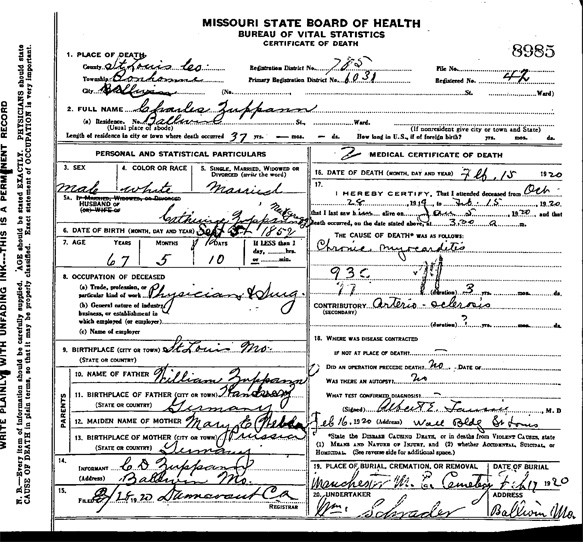 MISSOURI STATE BOARD OF HEALTH
BUREAU OF VITAL STATISTICS
CERTIFICATE OF DEATH
8985
1. PLACE OF DEATH
County St Louis Co Registration District No. 785 File No.
Township Bonhomme Primary Registration District No. 6031 Registered No. 42
City Ballwin (No. St. Ward)
2. FULL NAME Charles Zuppann
(a) Residence. No. Ballwin St., Ward.
(Usual place of abode) (If nonresident give city or town and State)
Length of residence in city or town where death occurred 37 yrs. mos. ds. How long in U.S., if of foreign birth? yrs. mos. ds.
PERSONAL AND STATISTICAL PARTICULARS
3. SEX 4. COLOR OR RACE 5. SINGLE, MARRIED, WIDOWED OR DIVORCED (write the word)
male white Married
5a. IF MARRIED, WIDOWED, OR DIVORCED
HUSBAND OF
(OR) WIFE OF Catherine Zuppann
6. DATE OF BIRTH (MONTH, DAY AND YEAR) Sept 5 1852
7. AGE YEARS MONTHS DAYS If LESS than 1 day, hrs. or min.
67 5 10
8. OCCUPATION OF DECEASED
(a) Trade, profession, or particular kind of work Physician & Surg.
(b) General nature of industry, business, or establishment in which employed (or employer)
(c) Name of employer
9. BIRTHPLACE (CITY OR TOWN) St Louis Mo.
(STATE OR COUNTRY)
PARENTS
10. NAME OF FATHER William Zuppann
11. BIRTHPLACE OF FATHER (CITY OR TOWN)
(STATE OR COUNTRY) Germany
12. MAIDEN NAME OF MOTHER Mary C
13. BIRTHPLACE OF MOTHER (CITY OR TOWN) Prussia
(STATE OR COUNTRY) Germany
14. INFORMANT C D Zuppann
(Address) Ballwin Mo.
15. FILED 28 1920
REGISTRAR
2 MEDICAL CERTIFICATE OF DEATH
16. DATE OF DEATH (MONTH, DAY AND YEAR) Feb. 15 1920
17. I HEREBY CERTIFY, That I attended deceased from Oct
28 1919 to Feb 15 1920
that I last saw him alive on Jan 5 1920 and that
death occurred, on the date stated above, at 3:00 a m.
THE CAUSE OF DEATH* WAS AS FOLLOWS:
Chronic myocarditis
93C
(duration) 3 yrs. mos. ds.
CONTRIBUTORY Arterio-sclerosis
(SECONDARY)
(duration) ? yrs. mos. ds.
18. WHERE WAS DISEASE CONTRACTED
IF NOT AT PLACE OF DEATH
DID AN OPERATION PRECEDE DEATH? no DATE OF
WAS THERE AN AUTOPSY? No
WHAT TEST CONFIRMED DIAGNOSIS?
(Signed) Albert E. M. D
Feb 16, 1920 (Address) Wall Bldg St Louis
*State the DISEASE CAUSING DEATH, or in deaths from VIOLENT CAUSES, state (1) MEANS AND NATURE OF INJURY, and (2) whether ACCIDENTAL, SUICIDAL, or HOMICIDAL. (See reverse side for additional space.)
19. PLACE OF BURIAL, CREMATION, OR REMOVAL DATE OF BURIAL
Manchester M. E. Cemetery Feb 17 1920
20. UNDERTAKER ADDRESS
Wm. Schrader Ballwin Mo.
WRITE PLAINLY WITH UNFADING INK---THIS IS A PERMANENT RECORD
N. B.—Every item of information should be carefully supplied. AGE should be stated EXACTLY. PHYSICIANS should state
CAUSE OF DEATH in plain terms, so that it may be properly classified. Exact statement of OCCUPATION is very important.